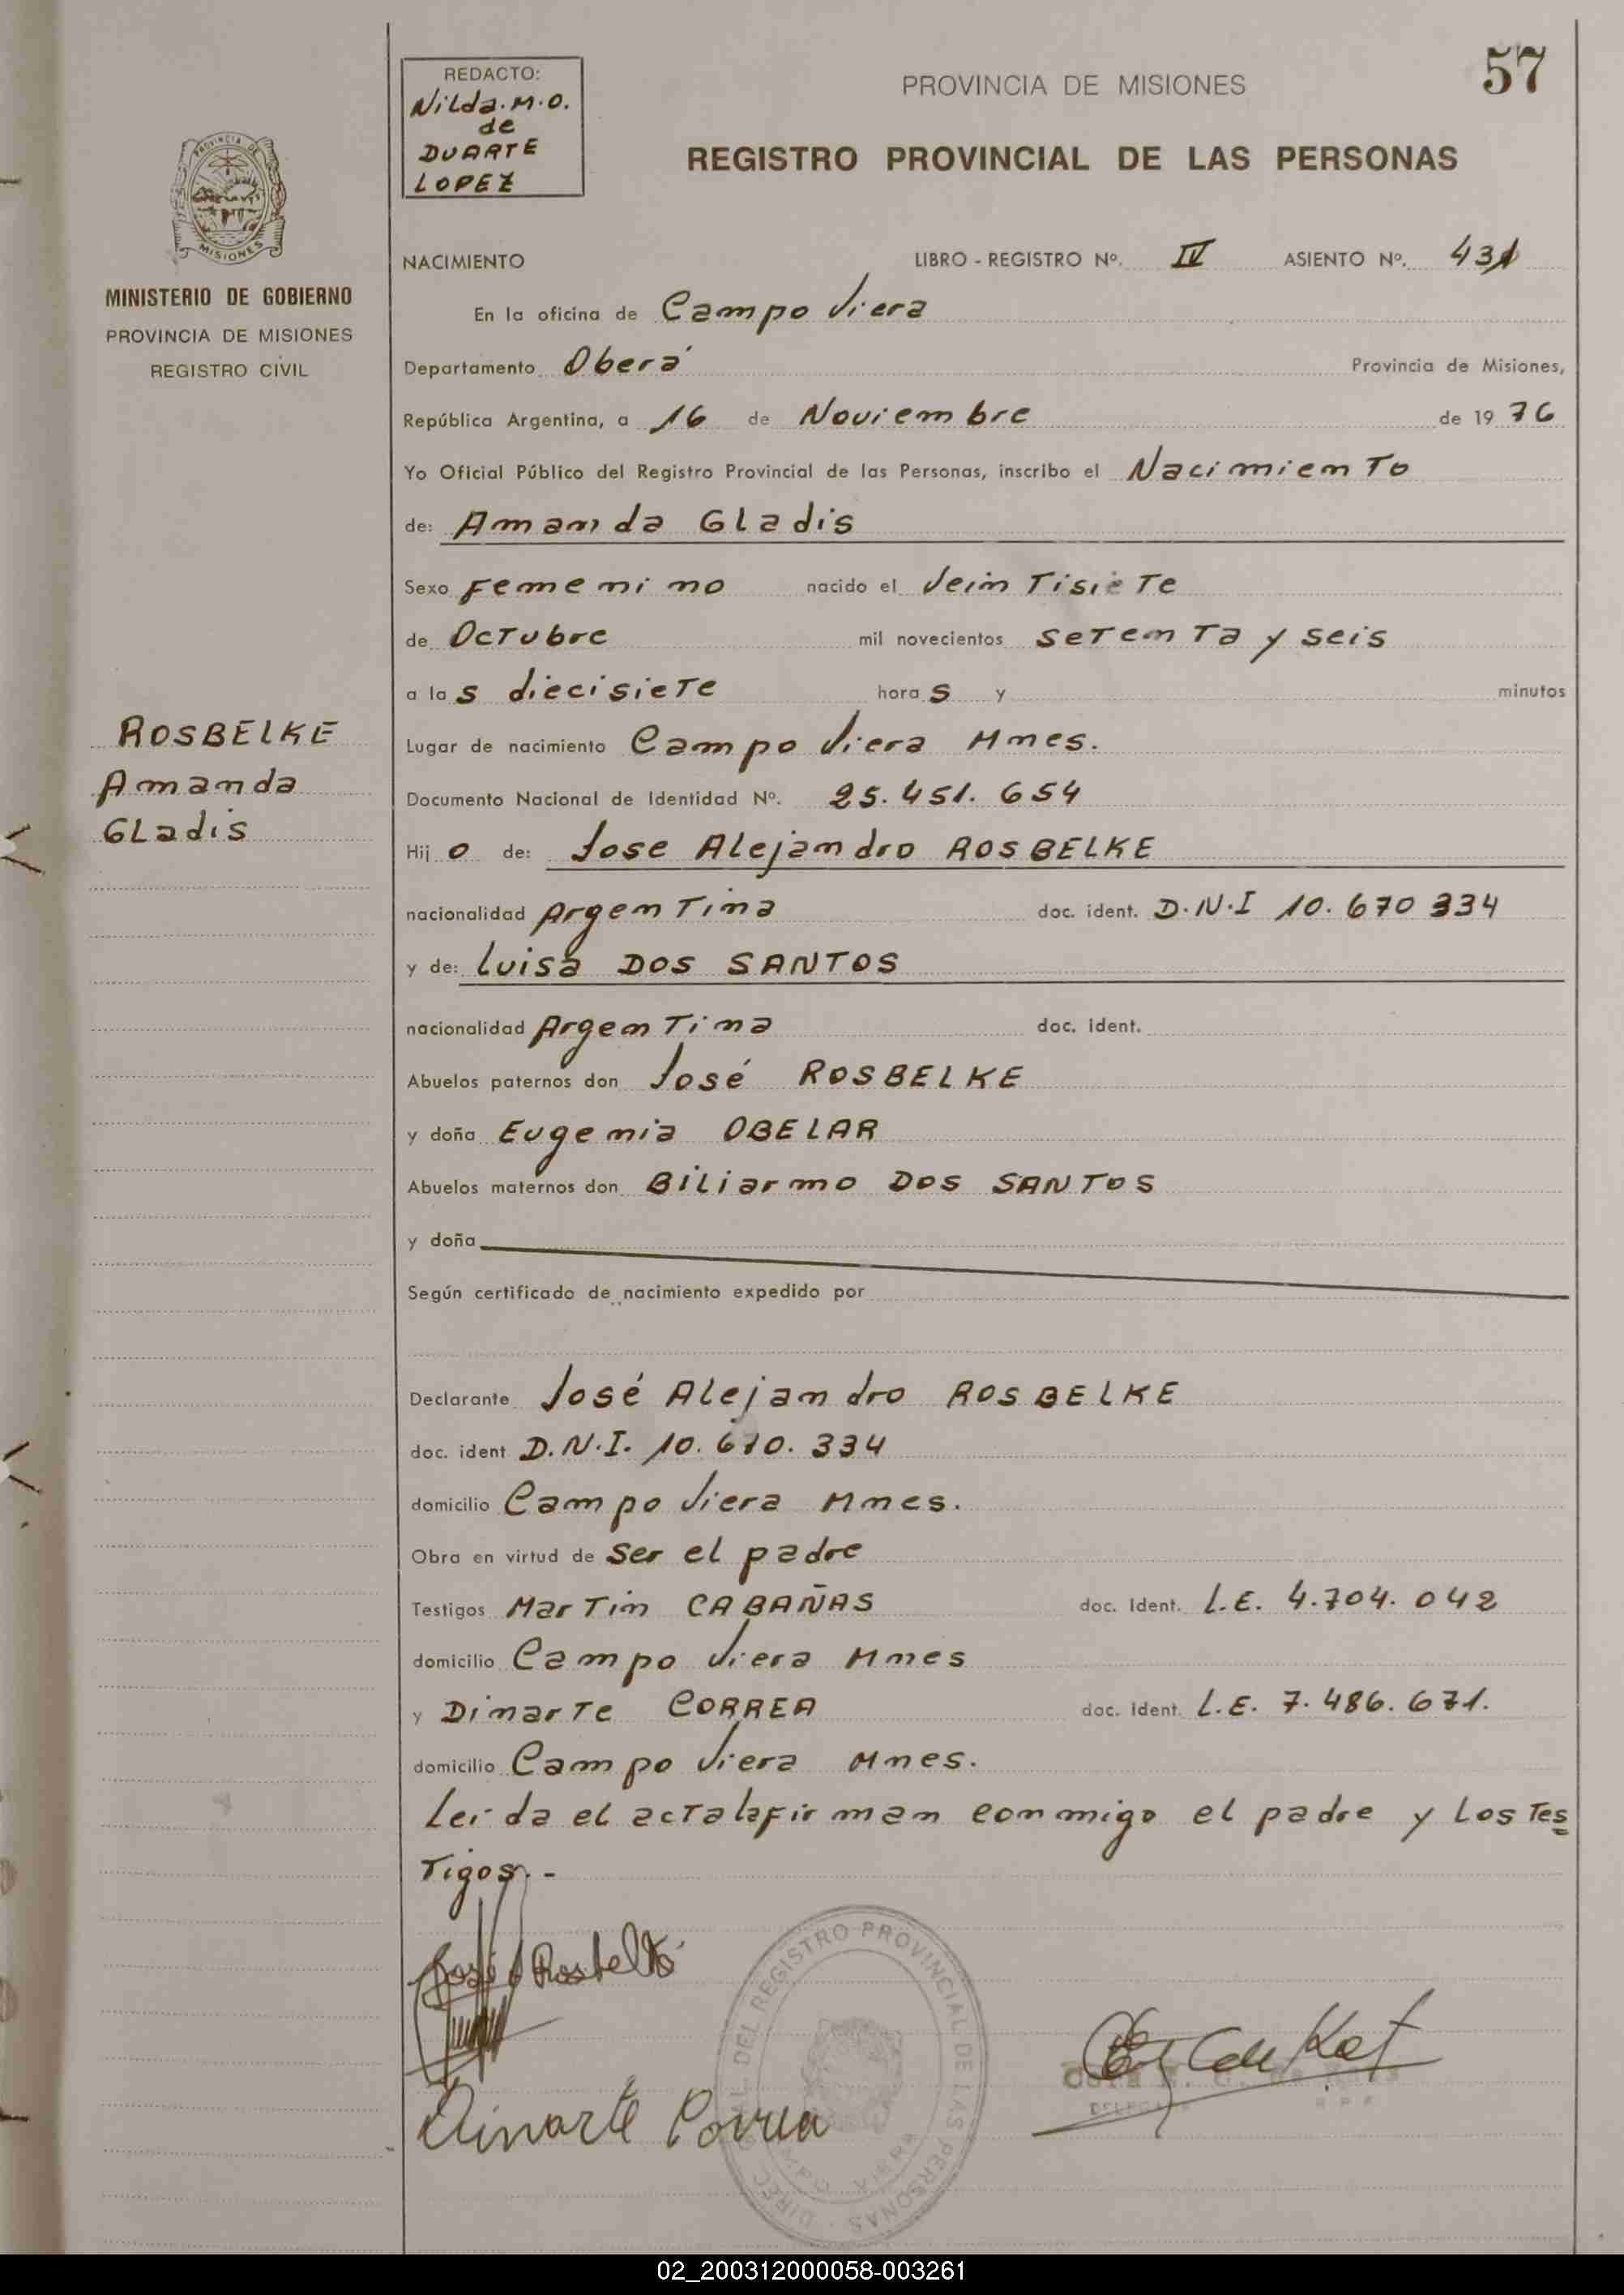 57
REDACTO:
Nilda.M.O.
de
DUARTE
LOPEZ
PROVINCIA DE MISIONES
REGISTRO PROVINCIAL DE LAS PERSONAS
PROVINCIA DE
MISIONES
MINISTERIO DE GOBIERNO
PROVINCIA DE MISIONES
REGISTRO CIVIL
NACIMIENTO LIBRO - REGISTRO Nº. IV ASIENTO Nº. 431
En la oficina de Campo Viera
Departamento Oberá Provincia de Misiones,
República Argentina, a 16 de Noviembre de 1976
Yo Oficial Público del Registro Provincial de las Personas, inscribo el Nacimiento
de: Amanda Gladis
Sexo Femenino nacido el Veintisiete
de Octubre mil novecientos setenta y seis
a las diecisiete horas y minutos
ROSBELKE
Amanda
Gladis
Lugar de nacimiento Campo Viera Mnes.
Documento Nacional de Identidad Nº. 25.451.654
Hijo de: Jose Alejandro ROSBELKE
nacionalidad Argentina doc. ident. D.N.I 10.670 334
y de: Luisa DOS SANTOS
nacionalidad Argentina doc. ident.
Abuelos paternos don José ROSBELKE
y doña Eugenia OBELAR
Abuelos maternos don Biliarmo DOS SANTOS
y doña
Según certificado de nacimiento expedido por
Declarante José Alejandro ROSBELKE
doc. ident D.N.I. 10.670.334
domicilio Campo Viera Mnes.
Obra en virtud de ser el padre
Testigos Martin CABAÑAS doc. Ident. L.E. 4.704.042
domicilio Campo Viera Mnes
y Dinarte CORREA doc. Ident. L.E. 7.486.671.
domicilio Campo Viera Mnes.
Leida el acta la firman conmigo el padre y los Tes
Tigos.-
José A Rosbelke
Dinarte Correa
DEL REGISTRO PROVINCIAL DE LAS PERSONAS
CAMPO VIERA
02_200312000058-003261